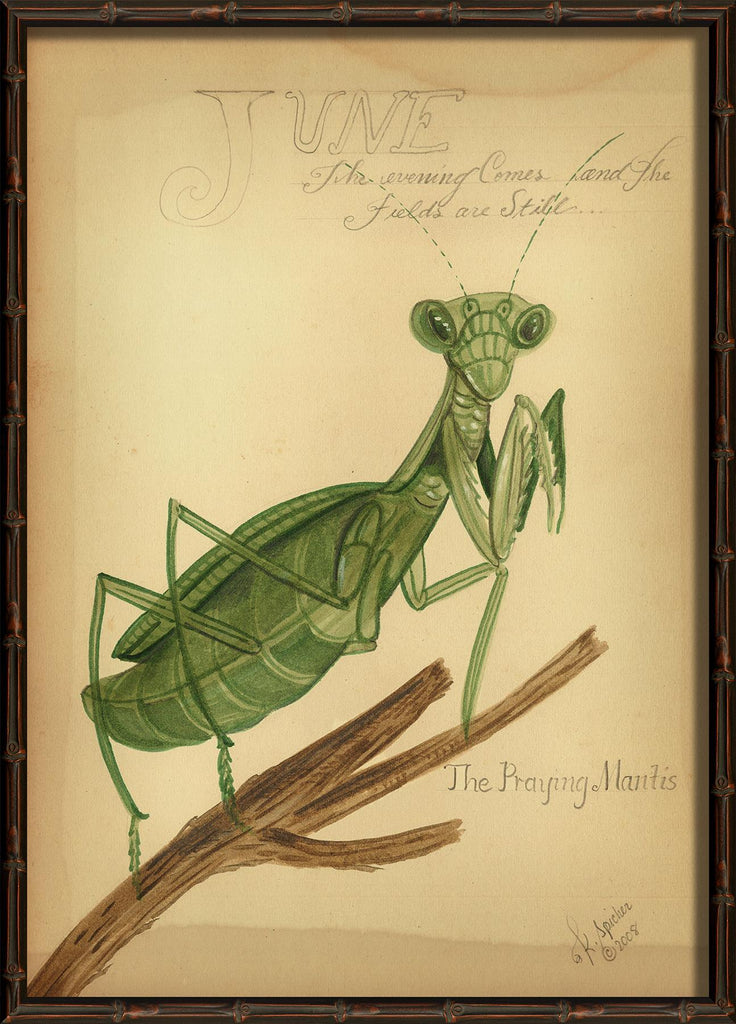 JUNE
The evening Comes and The
Fields are Still...
The Praying Mantis
K. Spicher
© 2008